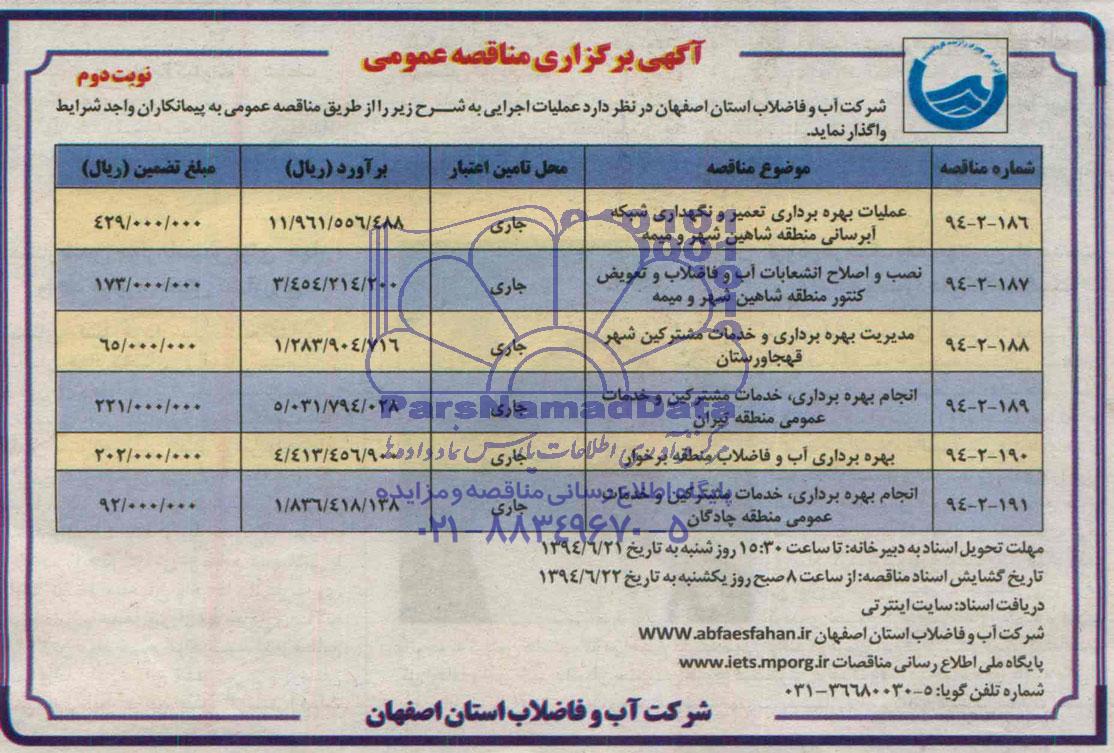 آگهی برگزاری مناقصه عمومی
نوبت دوم
شرکت آب و فاضلاب استان اصفهان در نظر دارد عملیات اجرایی به شرح زیر را از طریق مناقصه عمومی به پیمانکاران واجد شرایط
واگذار نماید.
شماره مناقصه موضوع مناقصه محل تامین اعتبار برآورد (ریال) مبلغ تضمین (ریال)
۹٤-۲-۱۸٦ عملیات بهره برداری تعمیر و نگهداری شبکه جاری ۱۱/۹٦۱/٥٥٦/٤۸۸ ٤۲۹/۰۰۰/۰۰۰
آبرسانی منطقه شاهین شهر و میمه
۹٤-۲-۱۸۷ نصب و اصلاح انشعابات آب و فاضلاب و تعویض جاری ۳/٤٥٤/۲۱٤/۲۰۰ ۱۷۳/۰۰۰/۰۰۰
کنتور منطقه شاهین شهر و میمه
۹٤-۲-۱۸۸ مدیریت بهره برداری و خدمات مشترکین شهر جاری ۱/۲۸۳/۹۰٤/۷۱٦ ٦٥/۰۰۰/۰۰۰
قهجاورستان
۹٤-۲-۱۸۹ انجام بهره برداری، خدمات مشترکین و خدمات جاری ٥/۰۳۱/۷۹٤/۰۲۸ ۲۲۱/۰۰۰/۰۰۰
عمومی منطقه تیران
۹٤-۲-۱۹۰ بهره برداری آب و فاضلاب منطقه برخوار جاری ٤/٤۱۳/٤٥٦/۹۰۰ ۲۰۲/۰۰۰/۰۰۰
۹٤-۲-۱۹۱ انجام بهره برداری، خدمات مشترکین و خدمات جاری ۱/۸۳٦/٤۱۸/۱۳۸ ۹۲/۰۰۰/۰۰۰
عمومی منطقه چادگان
ParsNamadData
مرکز فرآوری اطلاعات پارس نماد داده‌ها
پایگاه اطلاع رسانی مناقصه و مزایده
۰۲۱-۸۸۳٤۹٦۷۰-٥
مهلت تحویل اسناد به دبیرخانه: تا ساعت ۱٥:۳۰ روز شنبه به تاریخ ۱۳۹٤/٦/۲۱
تاریخ گشایش اسناد مناقصه: از ساعت ۸ صبح روز یکشنبه به تاریخ ۱۳۹٤/٦/۲۲
دریافت اسناد: سایت اینترتی
شرکت آب و فاضلاب استان اصفهان WWW.abfaesfahan.ir
پایگاه ملی اطلاع رسانی مناقصات www.iets.mporg.ir
شماره تلفن گویا: ٥-۰۳۱-۳٦٦۸۰۰۳۰
شرکت آب و فاضلاب استان اصفهان